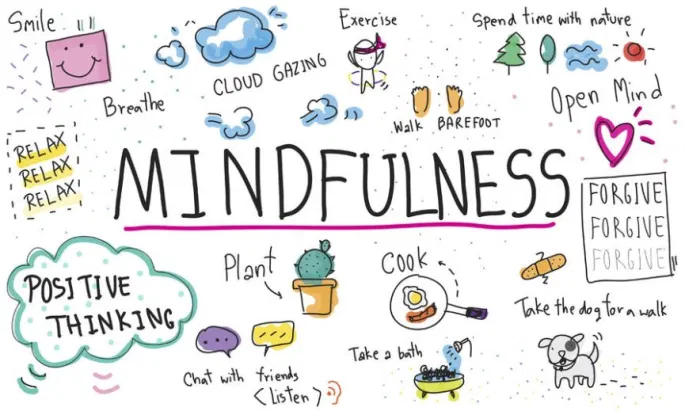 Smile
Exercise
Spend time with nature
CLOUD GAZING
Breathe
Open Mind
Walk BAREFOOT
RELAX
RELAX
RELAX
MINDFULNESS
FORGIVE
FORGIVE
FORGIVE
POSITIVE
THINKING
Plant
Cook
Take the dog for a walk
Take a bath
Chat with friends
<Listen>